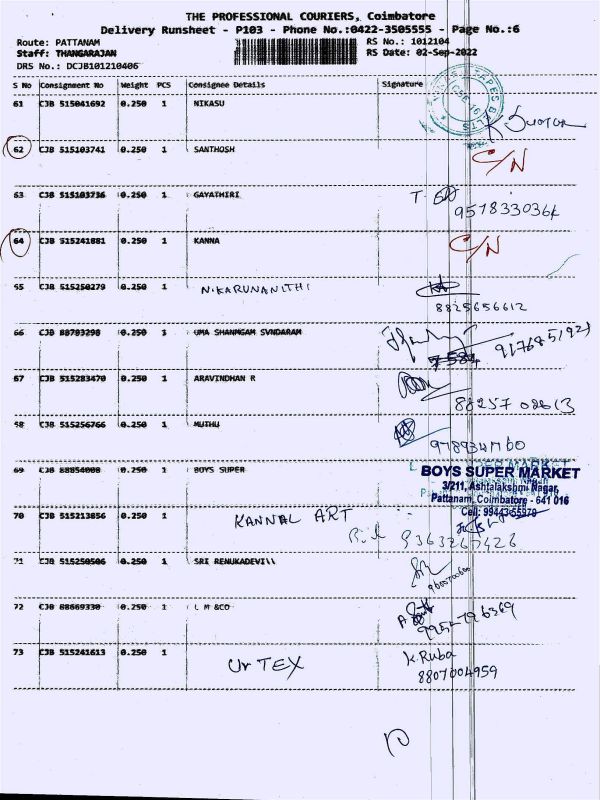 THE PROFESSIONAL COURIERS, Coimbatore
Delivery Runsheet - P103 - Phone No.:0422-3505555 - Page No.:6
Route: PATTANAM RS No.: 1012104
Staff: THANGARAJAN RS Date: 02-Sep-2022
DRS No.: DCJB101210406
S No Consignment No Weight PCS Consignee Details Signature
61 CJB 515041692 0.250 1 NIKASU
62 CJB 515103741 0.250 1 SANTHOSH C/N
63 CJB 515103736 0.250 1 GAYATHIRI
64 CJB 515241881 0.250 1 KANNA C/N
65 CJB 515250279 0.250 1 N.KARUNANITHI
8825656612
66 CJB 88703298 0.250 1 UMA SHANMGAM SVNDARAM
67 CJB 515283470 0.250 1 ARAVINDHAN R
68 CJB 515256766 0.250 1 MUTHU
69 CJB 88854008 0.250 1 BOYS SUPER
BOYS SUPER MARKET
3/211, Ashtalakshmi Nagar,
Pattanam, Coimbatore - 641 016
Cell: 99443-55979
70 CJB 515213856 0.250 1 KANNAL ART
9363267426
71 CJB 515250506 0.250 1 SRI RENUKADEVI\\
72 CJB 88669330 0.250 1 L M &CO
73 CJB 515241613 0.250 1 Ur TEX K.Ruba
8807004959